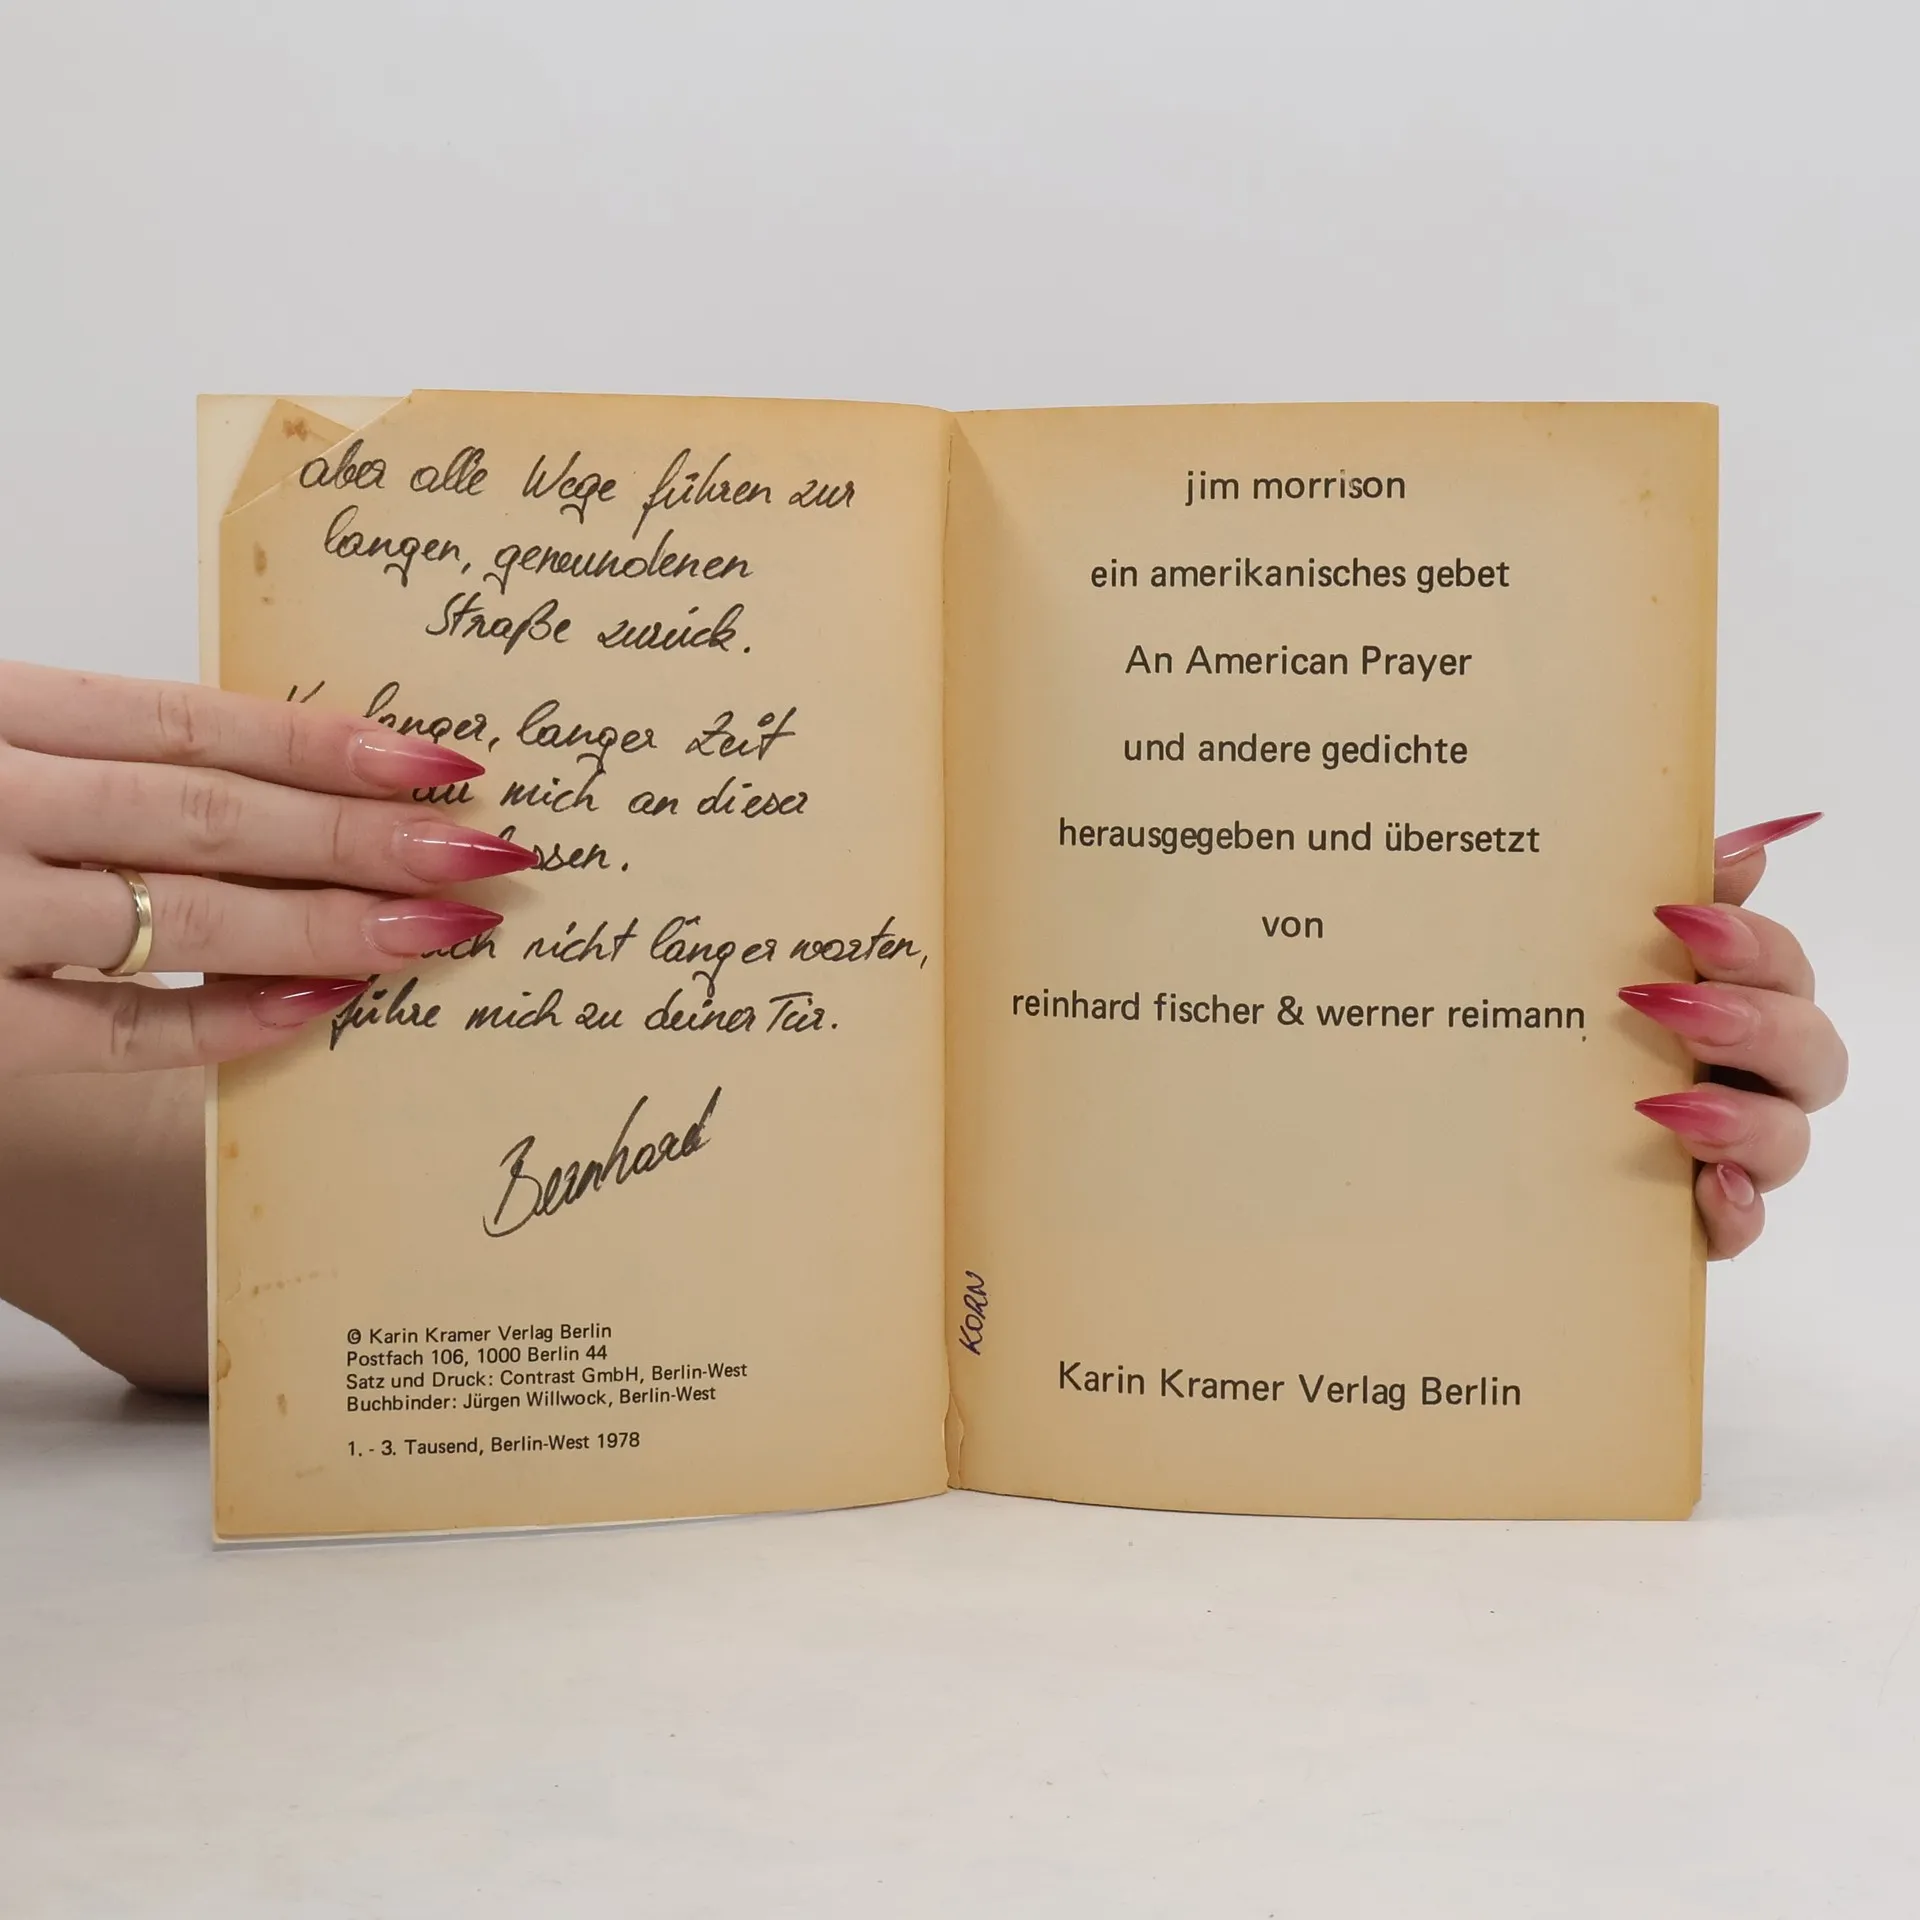 aber alle Wege führen zur
langen, gewundenen
Straße zurück.
langer, langer Zeit
mich an dieser
nicht länger warten,
führe mich zu deiner Tür.
Bernhard
© Karin Kramer Verlag Berlin
Postfach 106, 1000 Berlin 44
Satz und Druck: Contrast GmbH, Berlin-West
Buchbinder: Jürgen Willwock, Berlin-West
1. - 3. Tausend, Berlin-West 1978
jim morrison
ein amerikanisches gebet
An American Prayer
und andere gedichte
herausgegeben und übersetzt
von
reinhard fischer & werner reimann
KORN
Karin Kramer Verlag Berlin